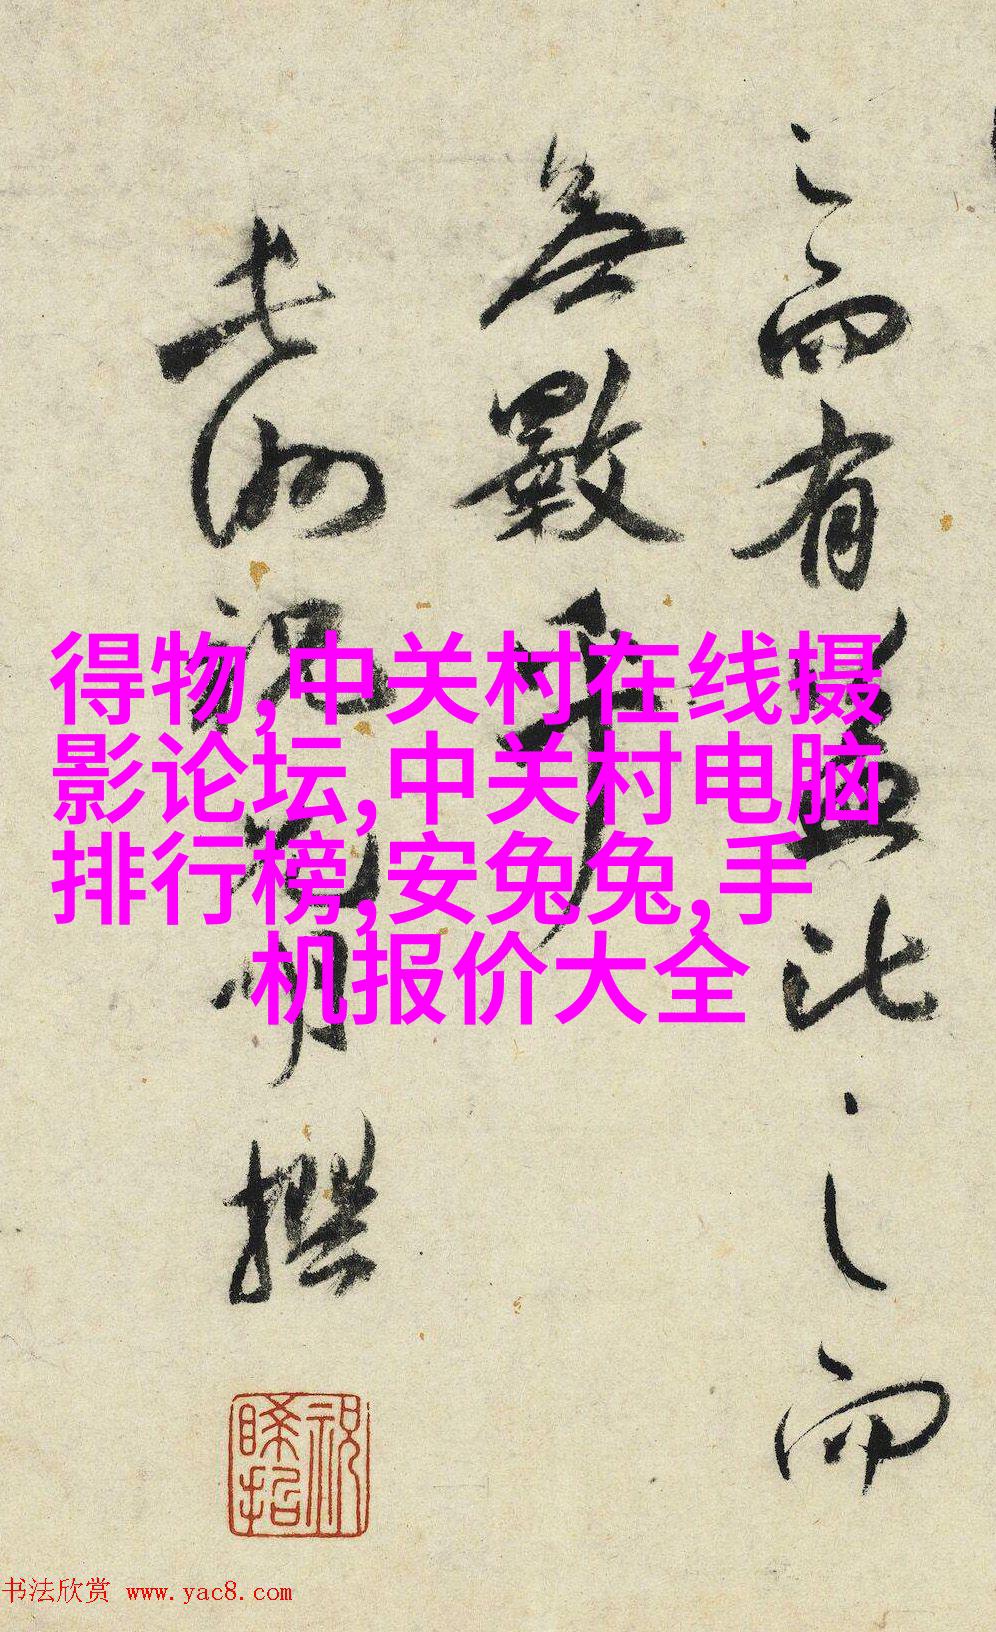 得物,中关村在线摄
影论坛,中关村电脑
排行榜,安兔兔,手
机报价大全
之而有益此之而
無斁乎
長洲祝允明撰
书法欣赏 www.yac8.com